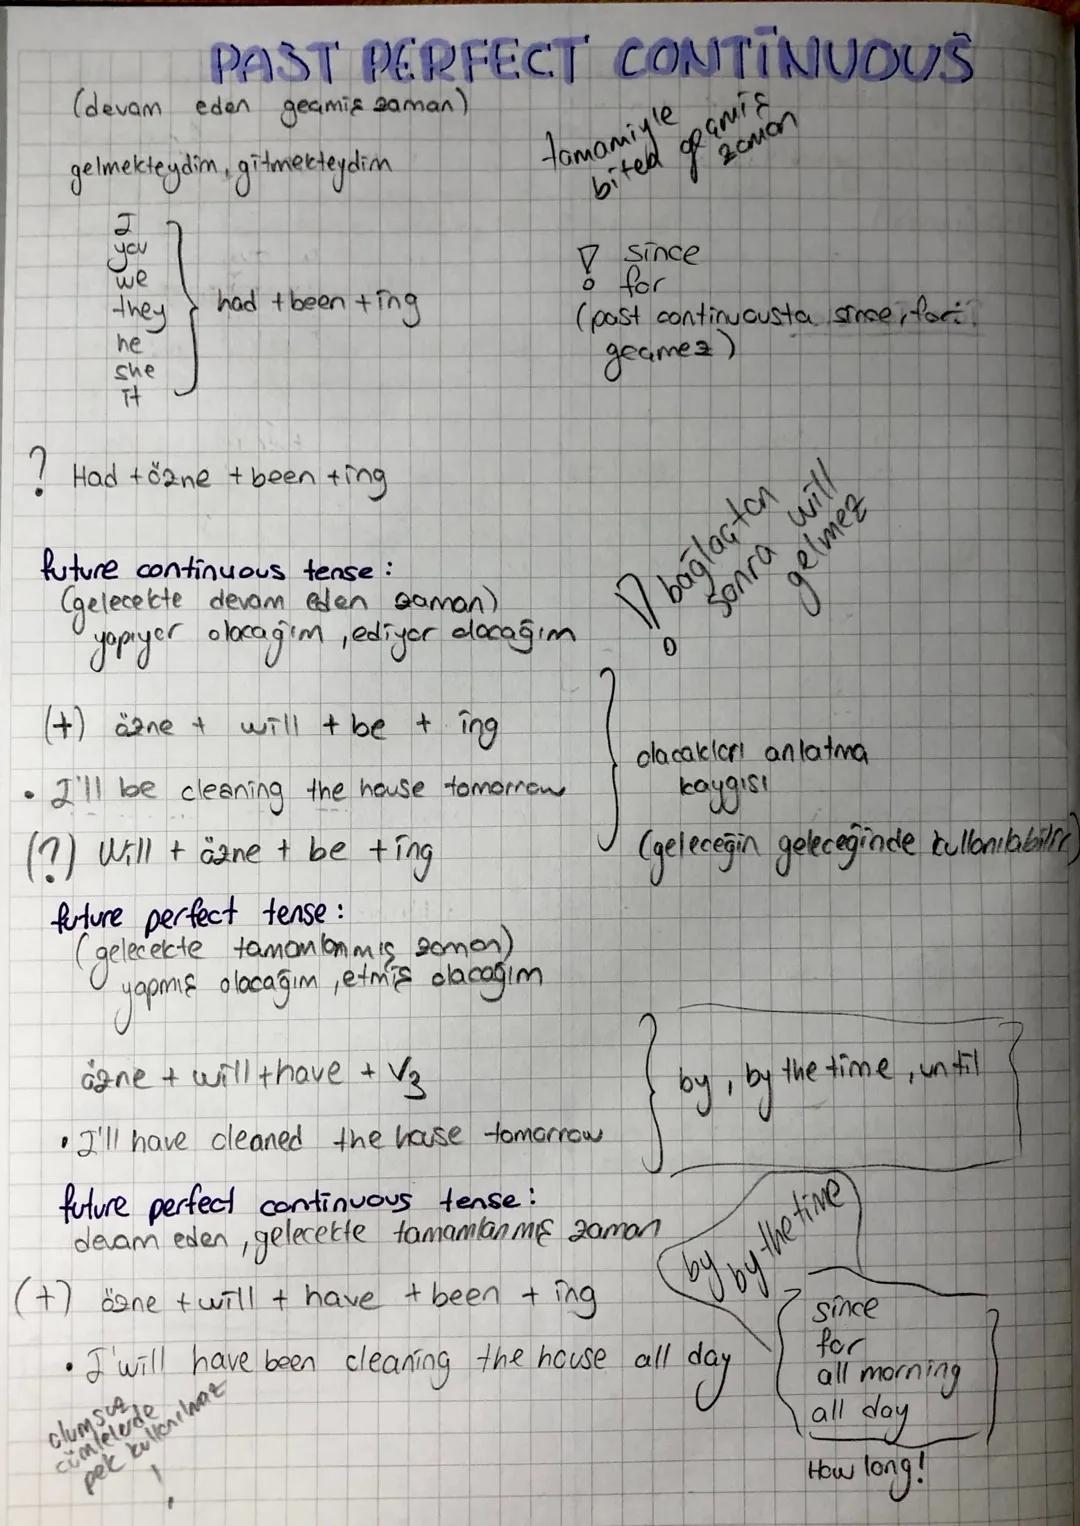 PAST PERFECT CONTİNUOUS
(devam eden geçmiş zaman)
tamamiyle
biten geçmiş
zaman
gelmekteydim, gitmekteydim
I
you
we
they
he
she
it
had + been + ing
! since
for
(past continuousta since, for
geçmez)
? Had + özne + been + ing
! bağlaçtan
sonra will
gelmez
future continuous tense:
(gelecekte devam eden zaman)
yapıyor olacağım, ediyor olacağım
(+) özne + will + be + ing
• I'll be cleaning the house tomorrow
(?) Will + özne + be + ing
olacakları anlatma
kaygısı
(geleceğin geleceğinde kullanılabilir)
future perfect tense:
(gelecekte tamamlanmış zaman)
yapmış olacağım, etmiş olacağım
özne + will + have + V3
• I'll have cleaned the house tomorrow
by, by the time, until
future perfect continuous tense:
devam eden, gelecekte tamamlanmış zaman
(+) özne + will + have + been + ing
• I'will have been cleaning the house all day
by by the time
since
for
all morning
all day
How long!
olumsuz
cümlelerde
pek kullanılmaz
!